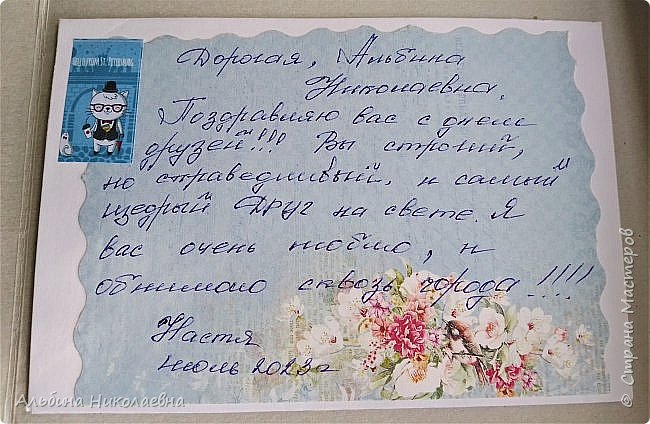 Дорогая, Альбина
Николаевна,
Поздравляю вас с днем
друзей!!! Вы строгий,
но справедливый, и самый
щедрый ДРУГ на свете. Я
вас очень люблю, и
обнимаю сквозь города!!!!
Настя
июль 2023г
Альбина Николаевна
© Страна Мастеров